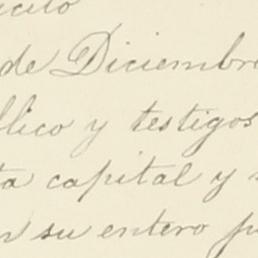 icito
de Diciembre
blico y testigos
ta capital y s
n su entero p